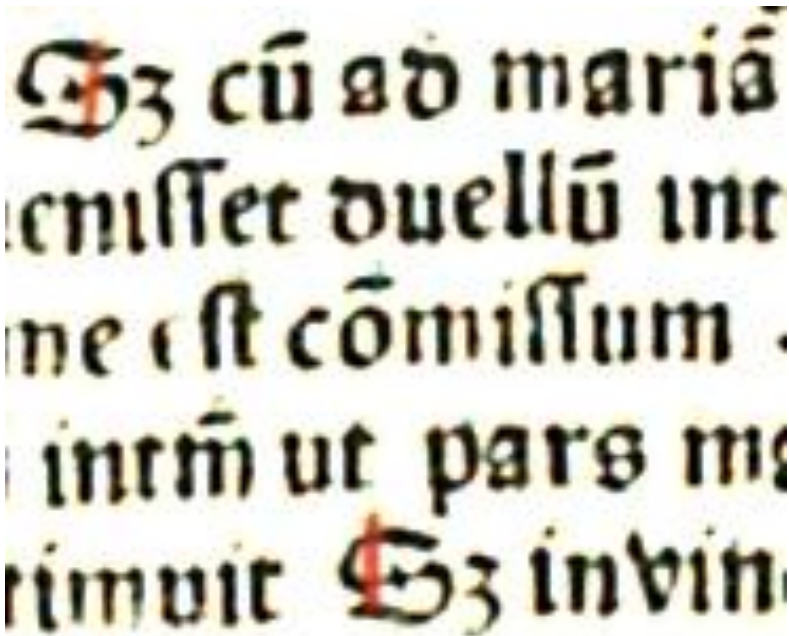 Sz cū ad mariā
cnisset duellū int
ne est cōmissum
intm̄ ut pars ma
rimuit Sz invin